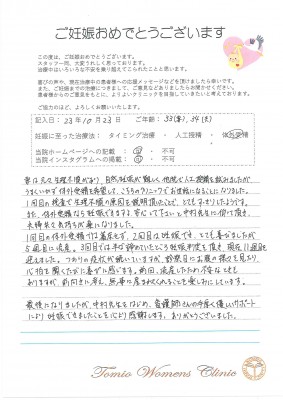 ご妊娠おめでとうございます
この度は、ご妊娠おめでとうございます。
スタッフ一同、大変うれしく思っております。
治療中はいろいろな不安を乗り越えてこられたことと思います。
喜びの声や、現在治療中の患者様への応援メッセージなどを頂けましたら幸いです。
また、ご妊娠までの治療につきまして、ご意見などありましたらお聞かせください。
患者様からのご意見をもとに、よりよいクリニックを目指していきたいと考えております。
ご協力のほど、よろしくお願いいたします。
記入日： 23年10月23日 ご年齢：33(妻), 34(夫)
妊娠に至った治療法： タイミング治療 ・ 人工授精 ・ 体外受精
当院ホームページへの記載： 可 ・ 不可
当院インスタグラムへの掲載： 可 ・ 不可
妻は元々生理不順があり、自然妊娠が難しく、他院で人工授精を試みたが
うまくいかず体外受精を希望して、こちらのクリニックでお世話になることになりました。
1回目の検査で生理不順の原因を説明頂いたことで、とても
また、体外受精なら妊娠できますと、安心して下さいと中村先生に仰って頂き、
夫婦共々気持ちが楽になりました。
1回目の体外受精では着床せず、2回目は妊娠でき、とても喜びましたが
6週目に流産。3回目では半ば諦めていたところ妊娠判定を頂き、現在11週目を
迎えました。つわりの症状が続いていますが、診察日にお腹の様子を見たり
心拍を聞くたびに喜びに感じます。前回、流産したため不安なことも
ありますが、前向きに考え、無事に産まれてくれることを楽しみにしています。
最後になりましたが、中村先生をはじめ、看護師さんの手厚く優しいサポート
により妊娠できましたことを心より感謝します。ありがとうございました。
Tomio Womens Clinic